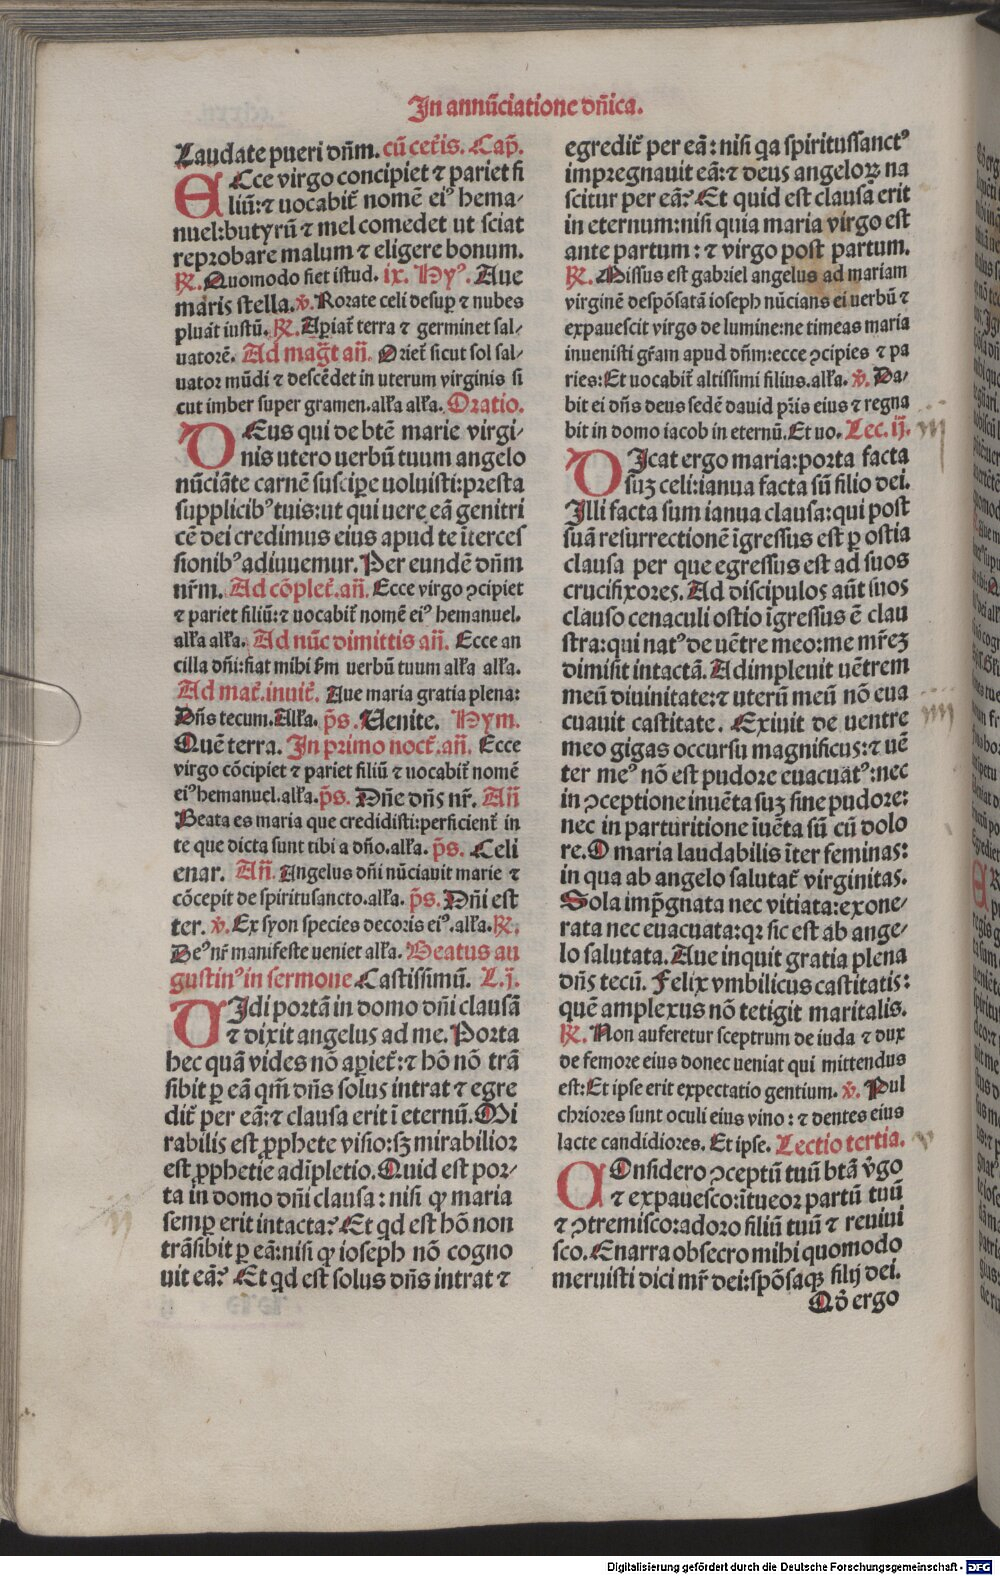 In annūciatione dn̄ica.
Laudate pueri dn̄m. cū cet̄is. Cap̄.
ECce virgo concipiet ⁊ pariet fi
liū:⁊ uocabit̄ nomē eiꝰ hema-
nuel:butyrū ⁊ mel comedet ut sciat
reprobare malum ⁊ eligere bonum.
℟. Quomodo fiet istud. ix. Hyꝰ. Aue
maris stella. ℣. Rorate celi desuꝑ ⁊ nubes
pluāt iustū. ℟. Aꝑiat̄ terra ⁊ germinet sal-
uatorē. Ad maḡt an̄. Oriet̄ sicut sol sal-
uator mūdi ⁊ descēdet in uterum virginis si
cut imber super gramen.alła alła. Oratio.
DEus qui de btē marie virgi-
nis utero uerbū tuum angelo
nūciāte carnē suscipe uoluisti:presta
supplicibꝰ tuis:ut qui uere eā genitri
cē dei credimus eius apud te īterces
sionibꝰ adiuuemur. Per eundē dn̄m
nr̄m. Ad cōplet̄.an̄. Ecce virgo ꝯcipiet
⁊ pariet filiū:⁊ uocabit̄ nomē eiꝰ hemanuel.
alła alła. Ad nūc dimittis an̄. Ecce an
cilla dn̄i:fiat mihi s̄m uerbū tuum alła alła.
Ad mat̄.inuit̄. Aue maria gratia plena:
Dn̄s tecum.Alła. p̄s. Uenite. Hym.
Quē terra. In primo noct̄.an̄. Ecce
virgo cōcipiet ⁊ pariet filiū ⁊ uocabit̄ nomē
eiꝰ hemanuel.alła.p̄s. Dn̄e dn̄s nr̄. An̄
Beata es maria que credidisti:perficient̄ in
te que dicta sunt tibi a dn̄o.alła. p̄s. Celi
enar. An̄. Angelus dn̄i nūciauit marie ⁊
cōcepit de spiritusancto.alła. p̄s. Dn̄i est
ter. ℣. Ex syon species decoris eiꝰ.alła. ℟.
Deꝰ nr̄ manifeste ueniet alła. Beatus au
gustinꝰ in sermone Castissimū. L.j.
UIdi portā in domo dn̄i clausā
⁊ dixit angelus ad me. Porta
hec quā vides nō aꝑiet̄:⁊ hō nō trā
sibit ꝑ eā qm̄ dn̄s solus intrat ⁊ egre
dit̄ per eā:⁊ clausa erit ī eternū. Mi
rabilis est ꝓphete visio:sꝫ mirabilior
est ꝓphetie adīpletio. Quid est por-
ta in domo dn̄i clausa: nisi ꝙ maria
semꝑ erit intacta? Et qd est hō non
trāsibit ꝑ eā:nisi ꝙ ioseph nō cogno
uit eā? Et qd est solus dn̄s intrat ⁊
egredit̄ per eā: nisi qa spiritussanctꝰ
impregnauit eā:⁊ deus angeloꝝ na
scitur per eā? Et quid est clausa erit
in eternum:nisi quia maria virgo est
ante partum: ⁊ virgo post partum.
℟. Missus est gabriel angelus ad mariam
virginē despōsatā ioseph nūcians ei uerbū ⁊
expauescit virgo de lumine:ne timeas maria
inuenisti gr̄am apud dn̄m:ecce ꝯcipies ⁊ pa
ries:Et uocabit̄ altissimi filius.alła. ℣. Da-
bit ei dn̄s deus sedē dauid pr̄is eius ⁊ regna
bit in domo iacob in eternū. Et uo. Lec. ij.
DIcat ergo maria:porta facta
suꝫ celi:ianua facta sū filio dei.
Illi facta sum ianua clausa:qui post
suā resurrectionē īgressus est ꝑ ostia
clausa per que egressus est ad suos
crucifixores. Ad discipulos aūt suos
clauso cenaculi ostio īgressus ē clau
stra:qui natꝰ de uētre meo:me mr̄eꝫ
dimisit intactā. Adimpleuit uētrem
meū diuinitate:⁊ uterū meū nō eua
cuauit castitate. Exiuit de uentre
meo gigas occursu magnificus:⁊ uē
ter meꝰ nō est pudore euacuatꝰ:nec
in ꝯceptione inuēta suꝫ sine pudore:
nec in parturitione īuēta sū cū dolo
re. O maria laudabilis īter feminas:
in qua ab angelo salutat̄ virginitas.
Sola imp̄gnata nec vitiata:exone-
rata nec euacuata:qꝛ sic est ab ange-
lo salutata. Aue inquit gratia plena
dn̄s tecū. Felix vmbilicus castitatis:
quē amplexus nō tetigit maritalis.
℟. Non auferetur sceptrum de iuda ⁊ dux
de femore eius donec ueniat qui mittendus
est:Et ipse erit expectatio gentium. ℣. Pul
chriores sunt oculi eius vino: ⁊ dentes eius
lacte candidiores. Et ipse. Lectio tertia.
COnsidero ꝯceptū tuū btā v̄go
⁊ expauesco:ītueor partū tuū
⁊ ꝯtremisco:adoro filiū tuū ⁊ reuiui
sco. Enarra obsecro mihi quomodo
meruisti dici mr̄ dei:spōsaqꝫ filij dei.
Qd̄ ergo
Digitalisierung gefördert durch die Deutsche Forschungsgemeinschaft - DFG